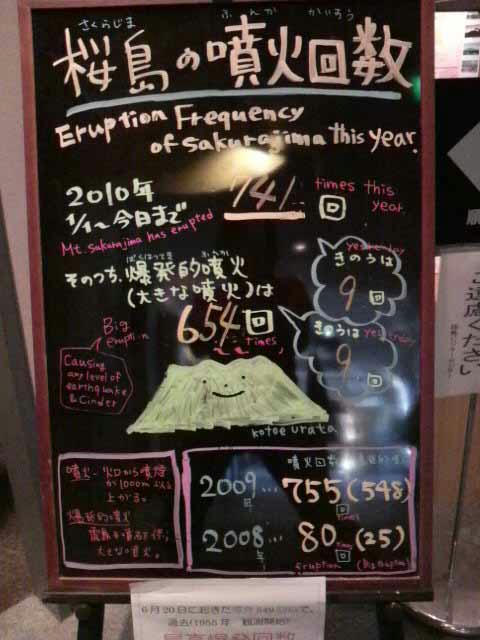 さくらじま ふんか かいすう
桜島の噴火回数
Eruption Frequency
of Sakurajima this year.
2010年
1/1～今日まで
741回
times this
year.
Mt. Sakurajima has erupted
そのうち、爆発的噴火
ばくはつてき ふんか
(大きな噴火)は
654回
times
yesterday
きのうは
9回
きのうは yesterday
9回
Big
eruption
Causing
any level of
earthquake
& Cinder
kotoe urata
噴火…火口から噴煙
が1000m以上
上がる。
爆発的噴火
大きな噴火。
噴火回数
2009年…755回(548)
times
2008年…80回(25)
times
eruption
ご遠慮ください
6月20日に起きた
過去(1955年 観測開始)
最高爆発回数